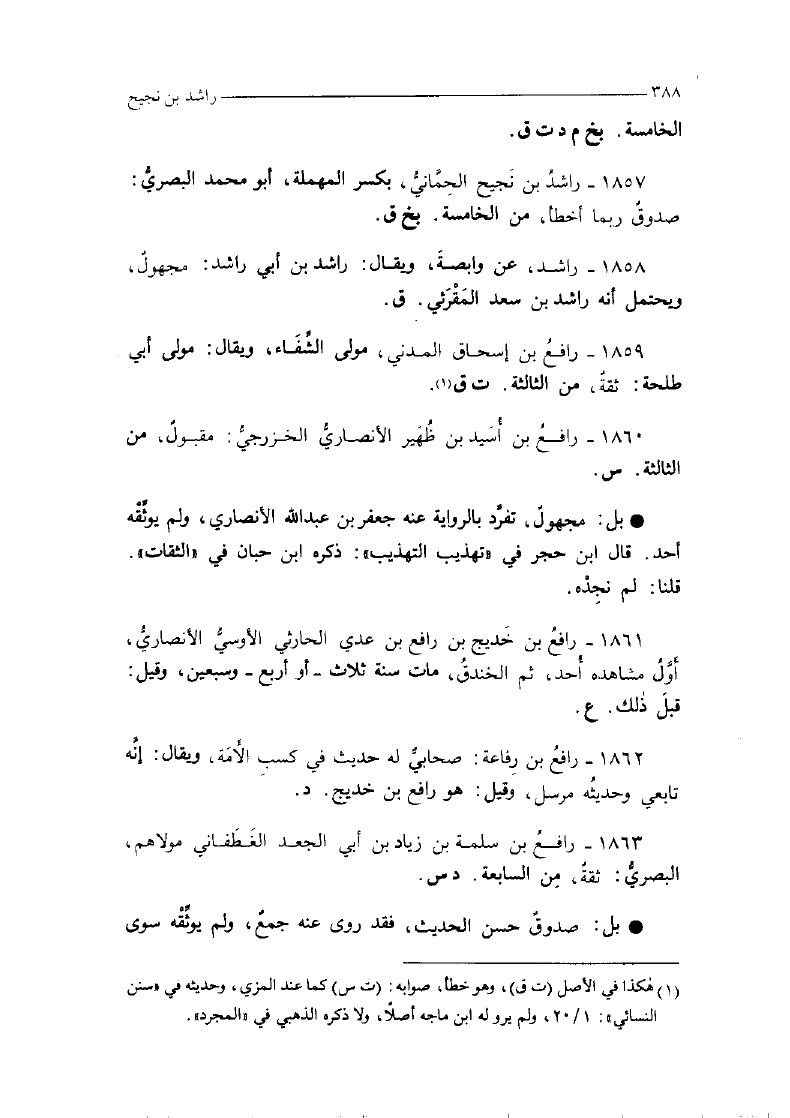 ٣٨٨ راشد بن نجيح
الخامسة. بخ م د ت ق.
١٨٥٧ - راشدُ بن نَجيح الحِمَّانيُّ، بكسر المهملة، أبو محمد البصريُّ:
صدوقٌ ربما أخطأ، من الخامسة. بخ ق.
١٨٥٨ - راشد، عن وابصةَ، ويقال: راشد بن أبي راشد: مجهولٌ،
ويحتمل أنه راشد بن سعد المَقْرَئي. ق.
١٨٥٩ - رافعُ بن إسحاق المدني، مولى الشِّفَاء، ويقال: مولى أبي
طلحة: ثقةٌ، من الثالثة. ت ق(١).
١٨٦٠ - رافعُ بن أُسَيد بن ظُهَير الأنصاريُّ الخزرجيُّ: مقبولٌ، من
الثالثة. س.
● بل: مجهولٌ، تفرَّد بالرواية عنه جعفر بن عبدالله الأنصاري، ولم يوثِّقْه
أحد. قال ابن حجر في «تهذيب التهذيب»: ذكره ابن حبان في «الثقات».
قلنا: لم نجِدْه.
١٨٦١ - رافعُ بن خَديج بن رافع بن عدي الحارثي الأوسيُّ الأنصاريُّ،
أوَّلُ مشاهده أُحد، ثم الخندقُ، مات سنة ثلاث - أو أربع - وسبعين، وقيل:
قبلَ ذٰلك. ع.
١٨٦٢ - رافعُ بن رِفاعة: صحابيٌّ له حديث في كسبِ الأَمَة، ويقال: إنَّه
تابعي وحديثُه مرسل، وقيل: هو رافع بن خديج. د.
١٨٦٣ - رافعُ بن سلمة بن زياد بن أبي الجعد الغَطَفاني مولاهم،
البصريُّ: ثقةٌ، مِن السابعة. د س.
● بل: صدوقٌ حسن الحديث، فقد روى عنه جمعٌ، ولم يوثِّقْه سوى
(١) هٰكذا في الأصل (ت ق)، وهو خطأ، صوابه: (ت س) كما عند المزي، وحديثه في «سنن
النسائي»: ١/ ٢٠، ولم يرو له ابن ماجه أصلًا، ولا ذكره الذهبي في «المجرد».